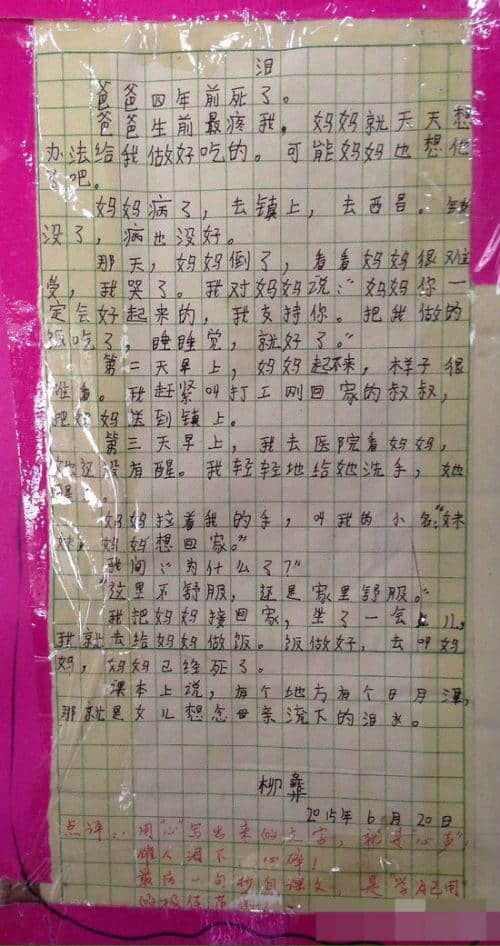 泪
爸爸四年前死了。
爸爸生前最疼我,妈妈就天天想
办法给我做好吃的。可能妈妈也想他
了吧。
妈妈病了,去镇上,去西昌。钱
没了,病也没好。
那天,妈妈倒了,看看妈妈很难
受,我哭了。我对妈妈说:“妈妈你一
定会好起来的,我支持你。把我做的
饭吃了,睡睡觉,就好了。”
第二天早上,妈妈起不来,样子很
难看。我赶紧叫打工刚回家的叔叔,
把妈妈送到镇上。
第三天早上,我去医院看妈妈,
她还没有醒。我轻轻地给她洗手,她
醒了。
妈妈拉着我的手,叫我的小名:“妹
妹,妈妈想回家。”
我问:“为什么了?”
“这里不舒服,还是家里舒服。”
我把妈妈接回家,坐了一会儿,
我就去给妈妈做饭。饭做好,去叫妈
妈,妈妈已经死了。
课本上说,有个地方有个日月潭,
那就是女儿想念母亲流下的泪水。
柳彝
2015年6月20日
点评:用“心”写出来的文字,就是“心声”,
催人泪下、心碎!
最后一句抄自课文,是“学以己用”
的极佳